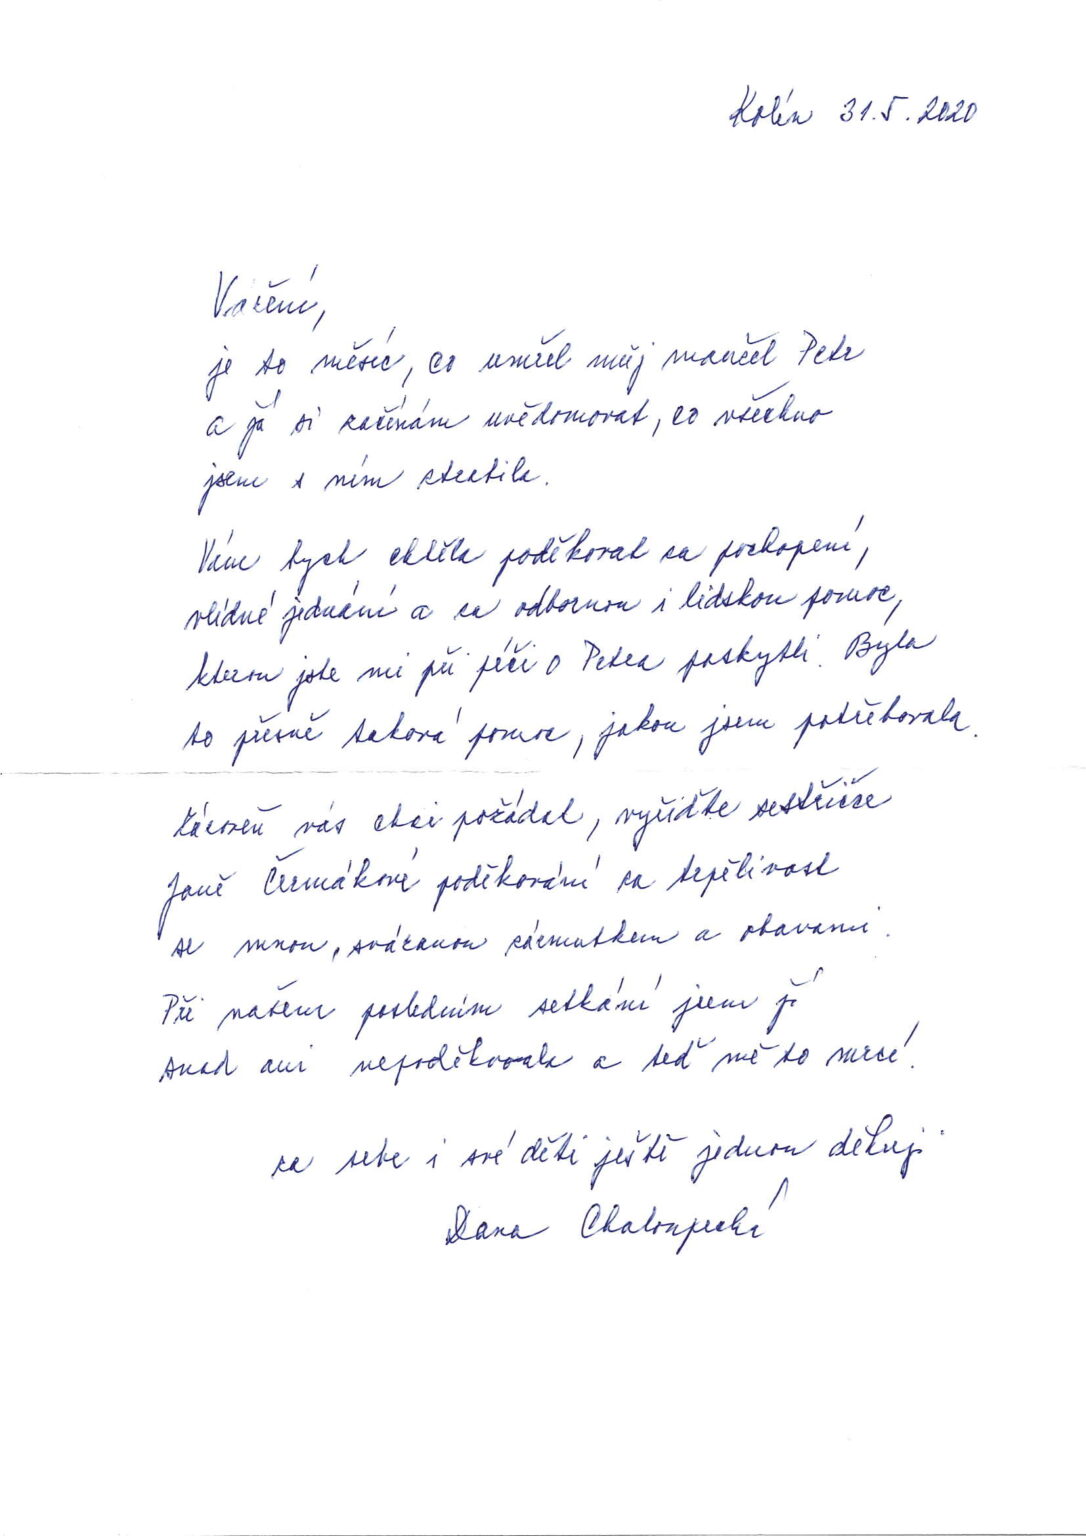 Kolín 31.5.2020
Vážení,
je to měsíc, co umřel můj manžel Petr
a já si začínám uvědomovat, co všechno
jsem s ním ztratila.
Vám bych chtěla poděkovat za pochopení,
vlídné jednání a za odbornou i lidskou pomoc,
kterou jste mi při péči o Petra poskytli. Byla
to přesně taková pomoc, jakou jsem potřebovala.
Zároveň vás chci požádat, vyřiďte sestřičce
Janě Čermákové poděkování za trpělivost
se mnou, zármutkem a obavami.
Při našem posledním setkání jsem jí
snad ani nepoděkovala a teď mě to mrzí.
za sebe i své děti ještě jednou děkuji
Dana Chaloupecká